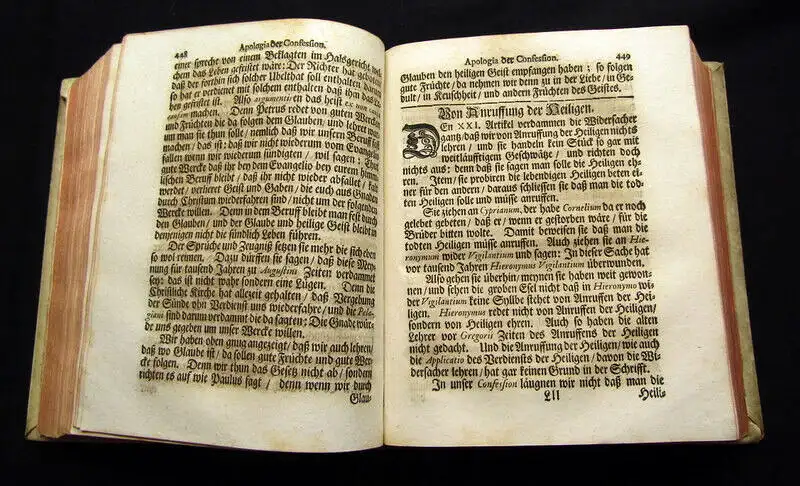 448
Apologia der Confession.
einer sprecht von einem Beklagten im Halsgericht
chen das Leben gefristet wäre: Der Richter hat geboten
daß der forthin sich solcher Ubelthat soll enthalten
so hat er verdienet mit solchem enthalten daß ihm das
ben gefristet ist. Also argumentiren das heist ex non causa
causam machen. Denn Petrus redet von guten Wercken
und Früchten die da folgen dem Glauben/ und lehret warum
man sie thun solle/ nemlich daß wir unsern Beruff fest
machen/ das ist: daß wir nicht wiederum vom Evangelio
fallen wenn wir wiederum sündigten/ wil sagen: Thut
gute Werck daß ihr bey dem Evangelio bey eurem himm-
lischen Beruff bleibt/ daß ihr nicht wieder abfallet/ kalt
werdet/ verlieret Geist und Gaben/ die euch aus Gnaden
durch Christum wiederfahren sind/ nicht um der folgenden
Wercke willen. Denn in dem Beruff bleibt man fest durch
den Glauben/ und der Glaube und heilige Geist bleibt in
denjenigen nicht die sündlich Leben führen.
Der Sprüche und Zeugniß setzen sie mehr die sich eben
so wol reimen. Dazu dürffen sie sagen/ daß diese Mey-
nung für tausend Jahren zu Augustini Zeiten verdammet
sey: das ist nicht wahr sondern eine Lügen. Denn die
Christliche Kirche hat allezeit gehalten/ daß Vergebung
der Sünde ohn Verdienst uns wiederfahre/ und die Pela-
giani sind darum verdammt die da sagten; Die Gnade wür-
de uns gegeben um unser Werck willen.
Wir haben oben gnug angezeigt/ daß wir auch lehren/
daß wo Glaube ist/ da sollen gute Früchte und gute Wer-
cke folgen. Denn wir thun das Gesetz nicht ab/ sondern
richten es auf wie Paulus sagt/ denn wenn wir durch
Glau-
Apologia der Confession.
449
Glauben den heiligen Geist empfangen haben; so folgen
gute Früchte/ da nehmen wir denn zu in der Liebe/ in Ge-
dult/ in Keuschheit/ und andern Früchten des Geistes.
Von Anruffung der Heiligen.
DEn XXI. Artikel verdammen die Widersacher
gantz/ daß wir von Anruffung der Heiligen nichts
lehren/ und sie handeln kein Stück so gar mit
weitläufftigem Geschwätz/ und richten doch
nichts aus: denn daß sie sagen man solle die Heiligen eh-
ren. Item/ sie probiren die lebendigen Heiligen beten ei-
ner für den andern/ daraus schliessen sie daß man die tod-
ten Heiligen solle und müsse anruffen.
Sie ziehen an Cyprianum, der habe Cornelium da er noch
gelebet gebeten/ daß er/ wenn er gestorben wäre/ für die
Brüder bitten wolte. Damit beweisen sie daß man die
todten Heiligen müsse anruffen. Auch ziehen sie an Hie-
ronymum wider Vigilantium und sagen: In dieser Sache hat
vor tausend Jahren Hieronymus Vigilantium überwunden.
Also gehen sie überhin/ meynen sie haben weit gewon-
nen/ und sehen die groben Esel nicht daß in Hieronymo wi-
der Vigilantium keine Syllbe stehet von Anruffen der Hei-
ligen. Hieronymus redet nicht von Anruffen der Heiligen/
sondern von Heiligen ehren. Auch so haben die alten
Lehrer vor Gregorii Zeiten des Anruffens der Heiligen
nicht gedacht. Und die Anruffung der Heiligen/ wie auch
die Applicatio des Verdiensts der Heiligen/ davon die Wi-
dersacher lehren/ hat gar keinen Grund in der Schrifft.
In unser Confession läugnen wir nicht daß man die
Lll
Heili-